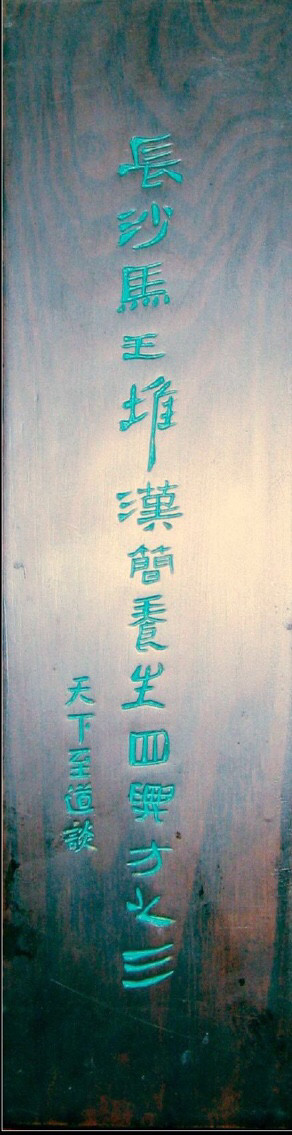 長沙馬王堆漢簡養生四興方之三
天下至道談